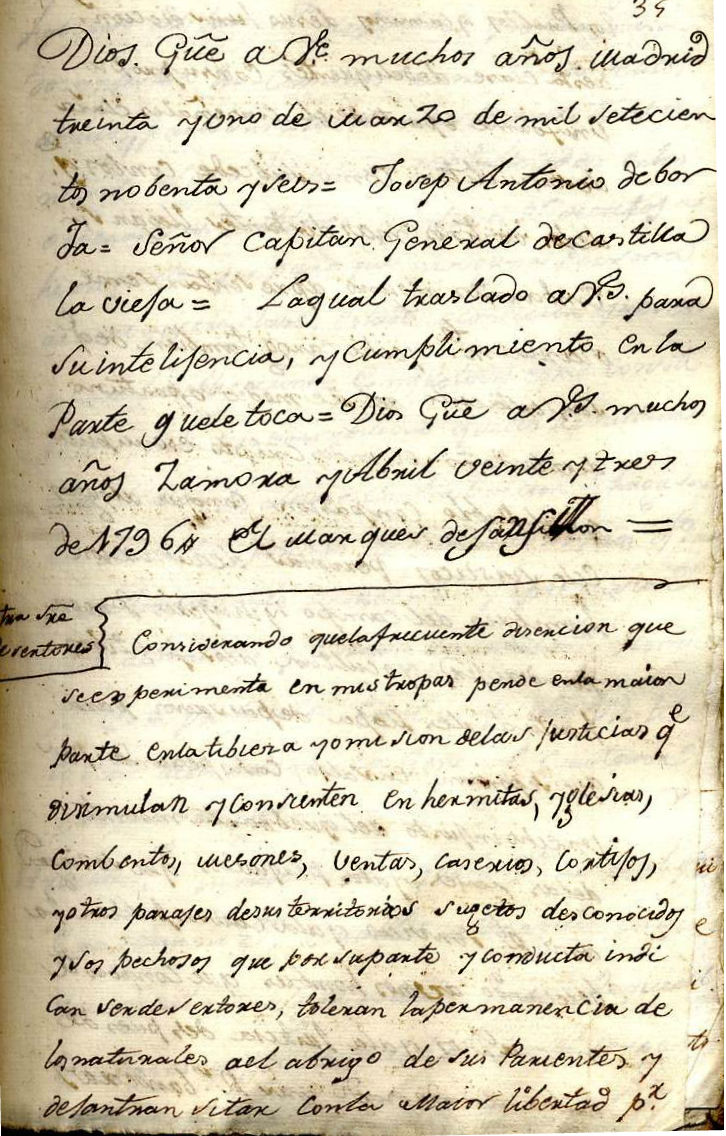 35
Dios. Gūe a Ve. muchos años. Madrid
treinta y uno de Marzo de mil setecien
tos nobenta y seis = Josep Antonio de bor
Ja = Señor Capitan General de Castilla
la vieja = La qual traslado a V.S. para
su intelijencia, y Cumplimiento, en la
Parte que le toca = Dios Gūe a V.S. muchos
años Zamora y Abril veinte y tres
de 1796 El Marques de
tra sre
desertores
Considerando que la frecuente desercion que
se experimenta en mis tropas pende en la maior
parte en la tibieza y omision de las Justicias qe
disimulan y consienten en hermitas, yglesias,
Combentos, mesones, ventas, caserios, Cortijos,
y otros parajes de sus territorios sugetos desconocidos
y sospechosos que por su parte y conducta indi
can ser desertores, toleran la permanencia de
los naturales ael abrigo de sus Parientes y
dejan transitar con la Maior libertad pr.